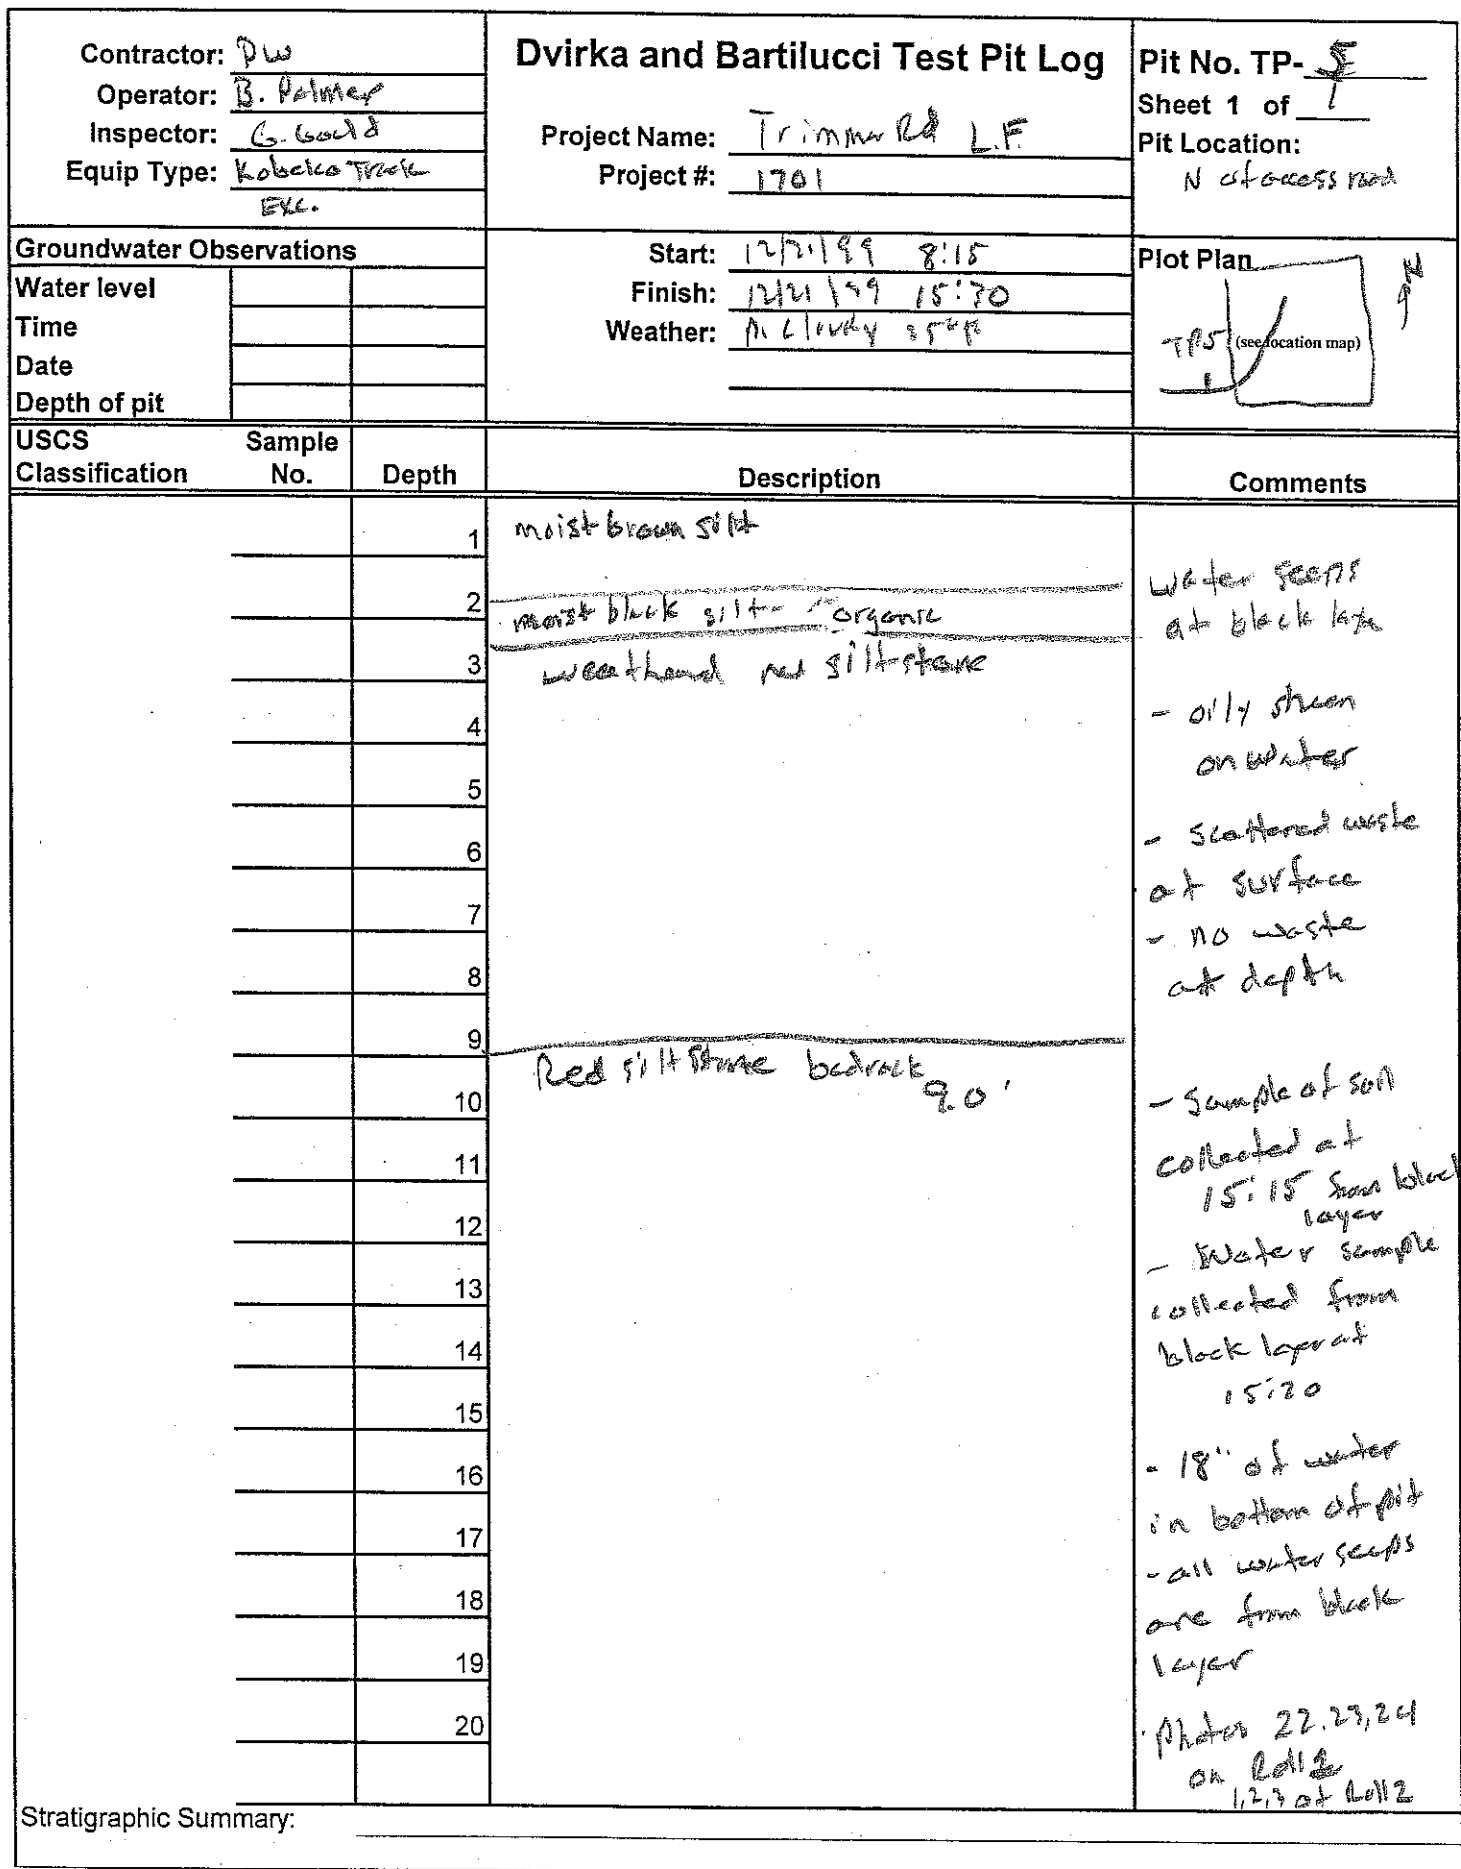 Contractor: PW
Operator: B. Palmer
Inspector: G. Gould
Equip Type: Kobelco Track
Exc.
Dvirka and Bartilucci Test Pit Log
Project Name: Trimmer Rd L.F.
Project #: 1701
Pit No. TP-5
Sheet 1 of 1
Pit Location:
N of access road
Groundwater Observations
Water level
Time
Date
Depth of pit
Start: 12/21/99 8:15
Finish: 12/21/99 15:30
Weather: P. Cloudy 35°F
Plot Plan
N
TP5
(see location map)
USCS Classification
Sample No.
Depth
Description
Comments
1 moist brown silt
water seeps
2 moist black silt - organic
at black layer
3 weathered red siltstone
4
- oily sheen
on water
5
- scattered waste
6
at surface
7
- no waste
8
at depth
9
Red siltstone bedrock
9.0'
10
- Sample of soil
collected at
11
15:15 from black
layer
12
- Water sample
13
collected from
14
black layer at
15:20
15
16
- 18" of water
in bottom of pit
17
- all water seeps
18
are from black
19
layer
20
Photos 22,23,24
on Roll
1,2,3 of Roll 2
Stratigraphic Summary: